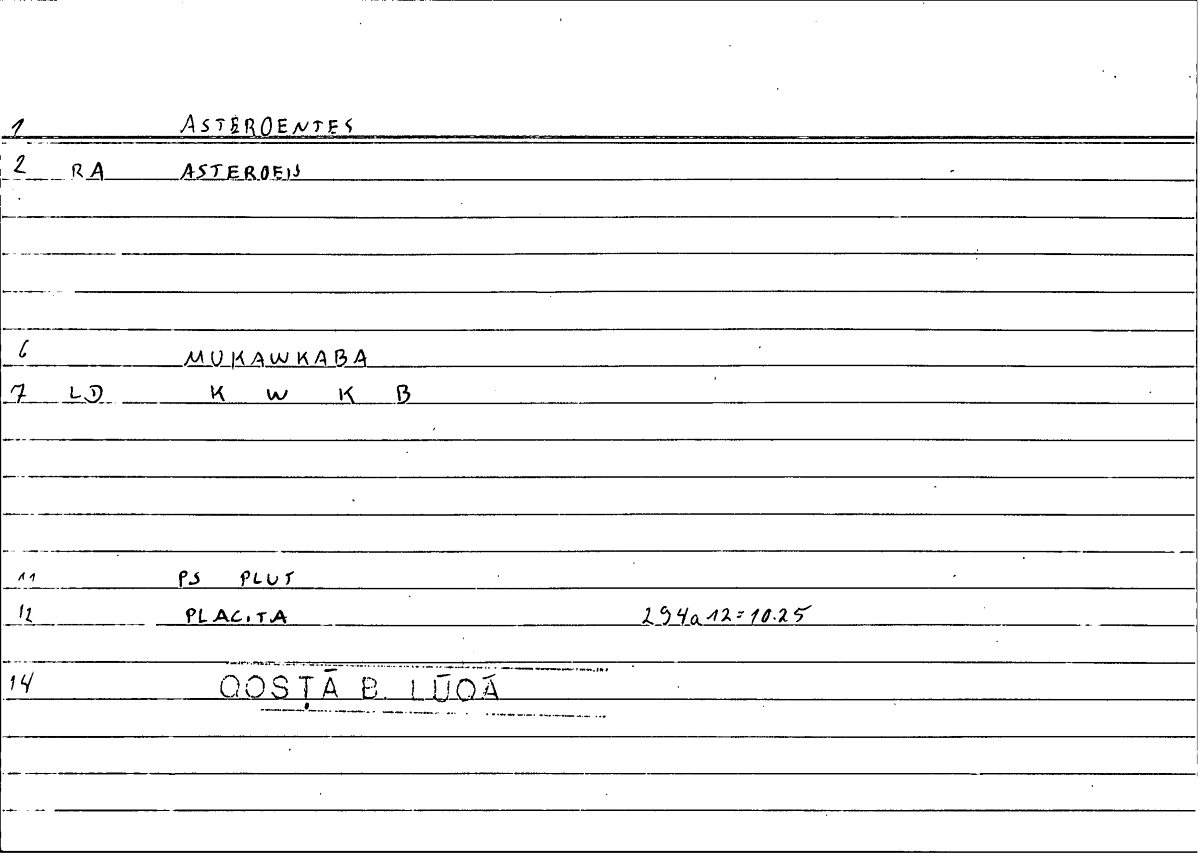 1 ASTEROENTES
2 RA ASTEROEIS
6 MUKAWKABA
7 LD K W K B
11 PS PLUT
12 PLACITA 294a12=10.25
14 QOSṬĀ B. LŪQĀ